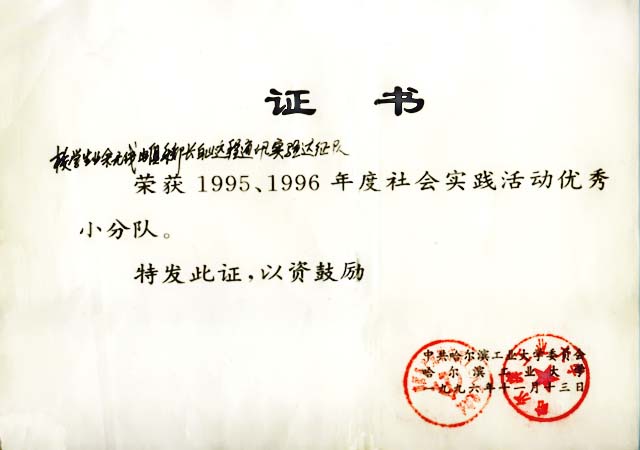 证 书
校学生业余无线电俱乐部长白山远程通讯实验远征队
荣获 1995、1996 年度社会实践活动优秀
小分队。
特发此证，以资鼓励
中共哈尔滨工业大学委员会
哈尔滨工业大学
一九九六年十一月十三日